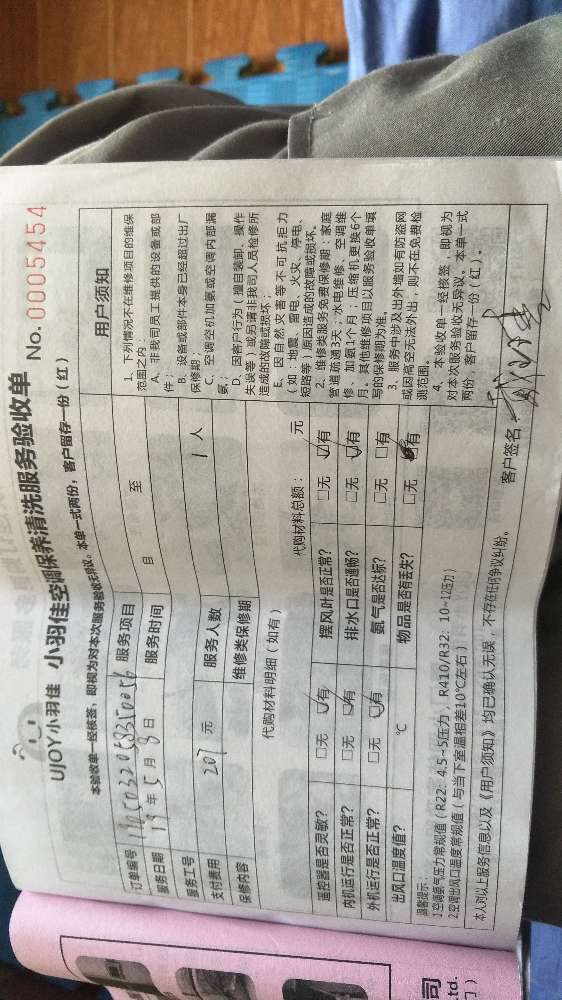 UJOY小羽佳 小羽佳空调保养清洗服务验收单 No. 0005454
本验收单一经核签，即视为对本次服务验收无异议。本单一式两份，客户留存一份（红）
订单编号 服务项目
服务日期 19 年 5 月 8 日 服务时间 自 至
服务工号 服务人数 1 人
支付费用 207 元 维修类保修期
保修内容
代购材料明细（如有） 代购材料总额： 元
遥控器是否灵敏? □无 □有 摆风叶是否正常? □无 □有
内机运行是否正常? □无 □有 排水口是否通畅? □无 □有
外机运行是否正常? □无 □有 氨气是否达标? □无 □有
出风口温度值? ℃ 物品是否有丢失? □无 有
温馨提示：
1空调氨气压力常规值（R22：4.5~5压力，R410/R32：10~12压力）
2空调出风口温度常规值（与当下室温相差10℃左右）
本人对以上服务信息以及《用户须知》均已确认无误，不存在任何争议纠纷。
客户签名：
用户须知
1、下列情况不在维修项目的维保
范围之内
A、非我司员工提供的设备或部
件；
B、设备或部件本身已经超过出厂
保修期
C、空调空机加氨或空调内部漏
氨。
D、因客户行为（擅自装卸、操作
失误等）或另请非我司人员检修所
造成的故障或损坏；
E、因自然灾害等不可抗拒力
（如：地震、雷电、火灾、停电、
短路等）原因造成的故障或损坏。
2、维修类服务免费保修期：家庭
管道疏通3天；水电维修、空调维
修、加氨1个月；压缩机更换6个
月。其他维修项目以服务验收单填
写的保修期为准。
3、服务中涉及出外墙如有防盗网
或因高空无法外出，则不在免费检
测范围。
4、本验收单一经核签，即视为
对本次服务验收无异议。本单一式
两份，客户留存一份（红）。
司
td.